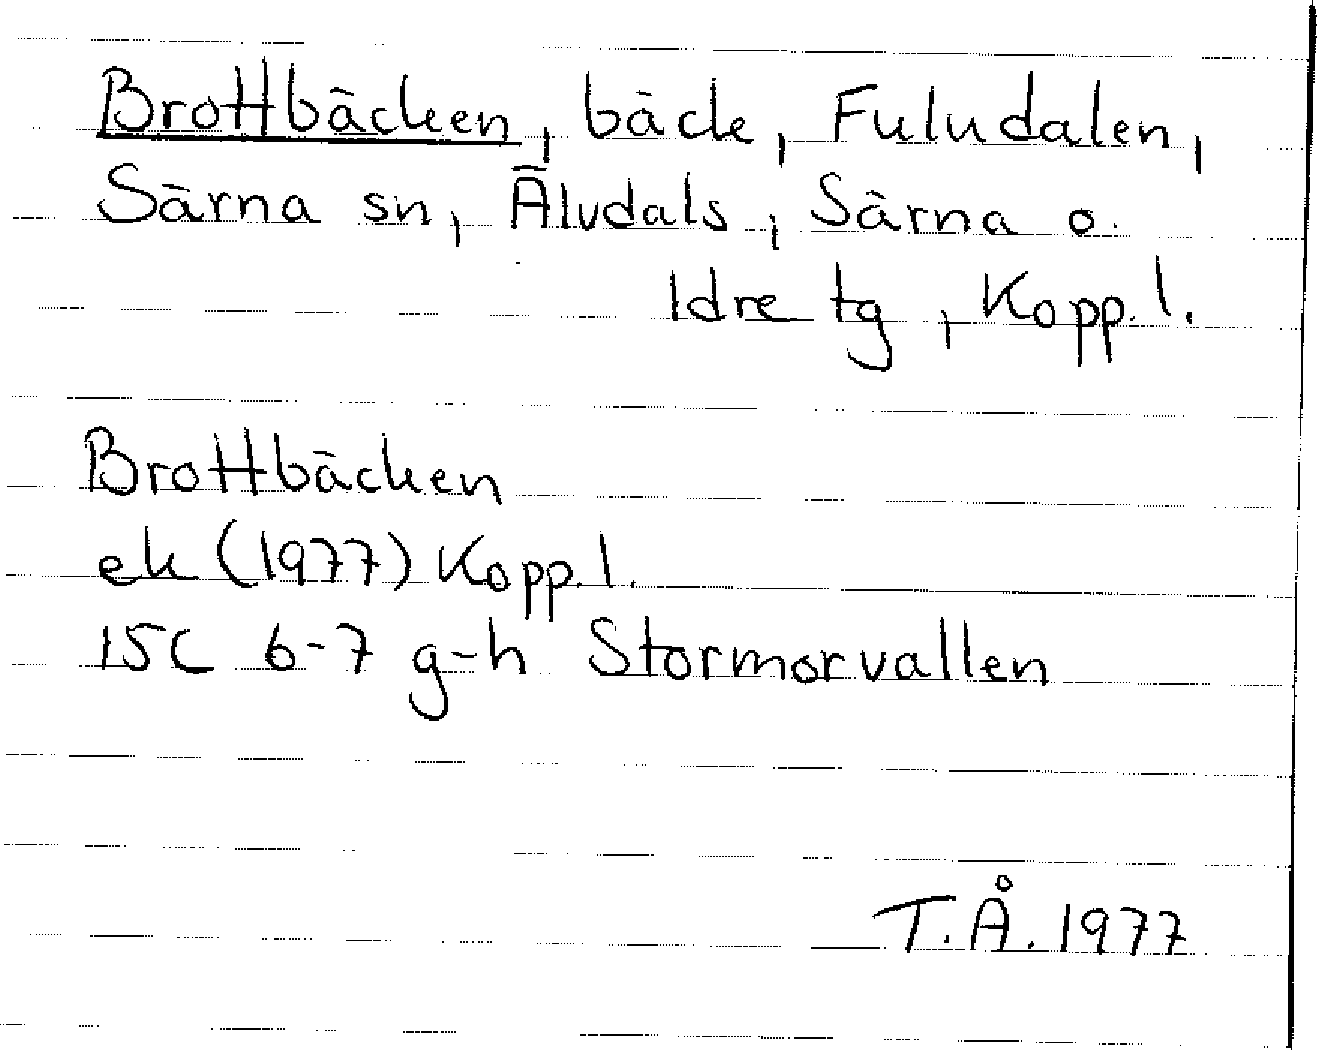 Brottbäcken, bäck, Fuludalen,
Särna sn, Älvdals, Särna o.
Idre tg, Kopp. l.
Brottbäcken
ek (1977) Kopp. l.
15C 6-7 g-h Stormorvallen
T.Å. 1977